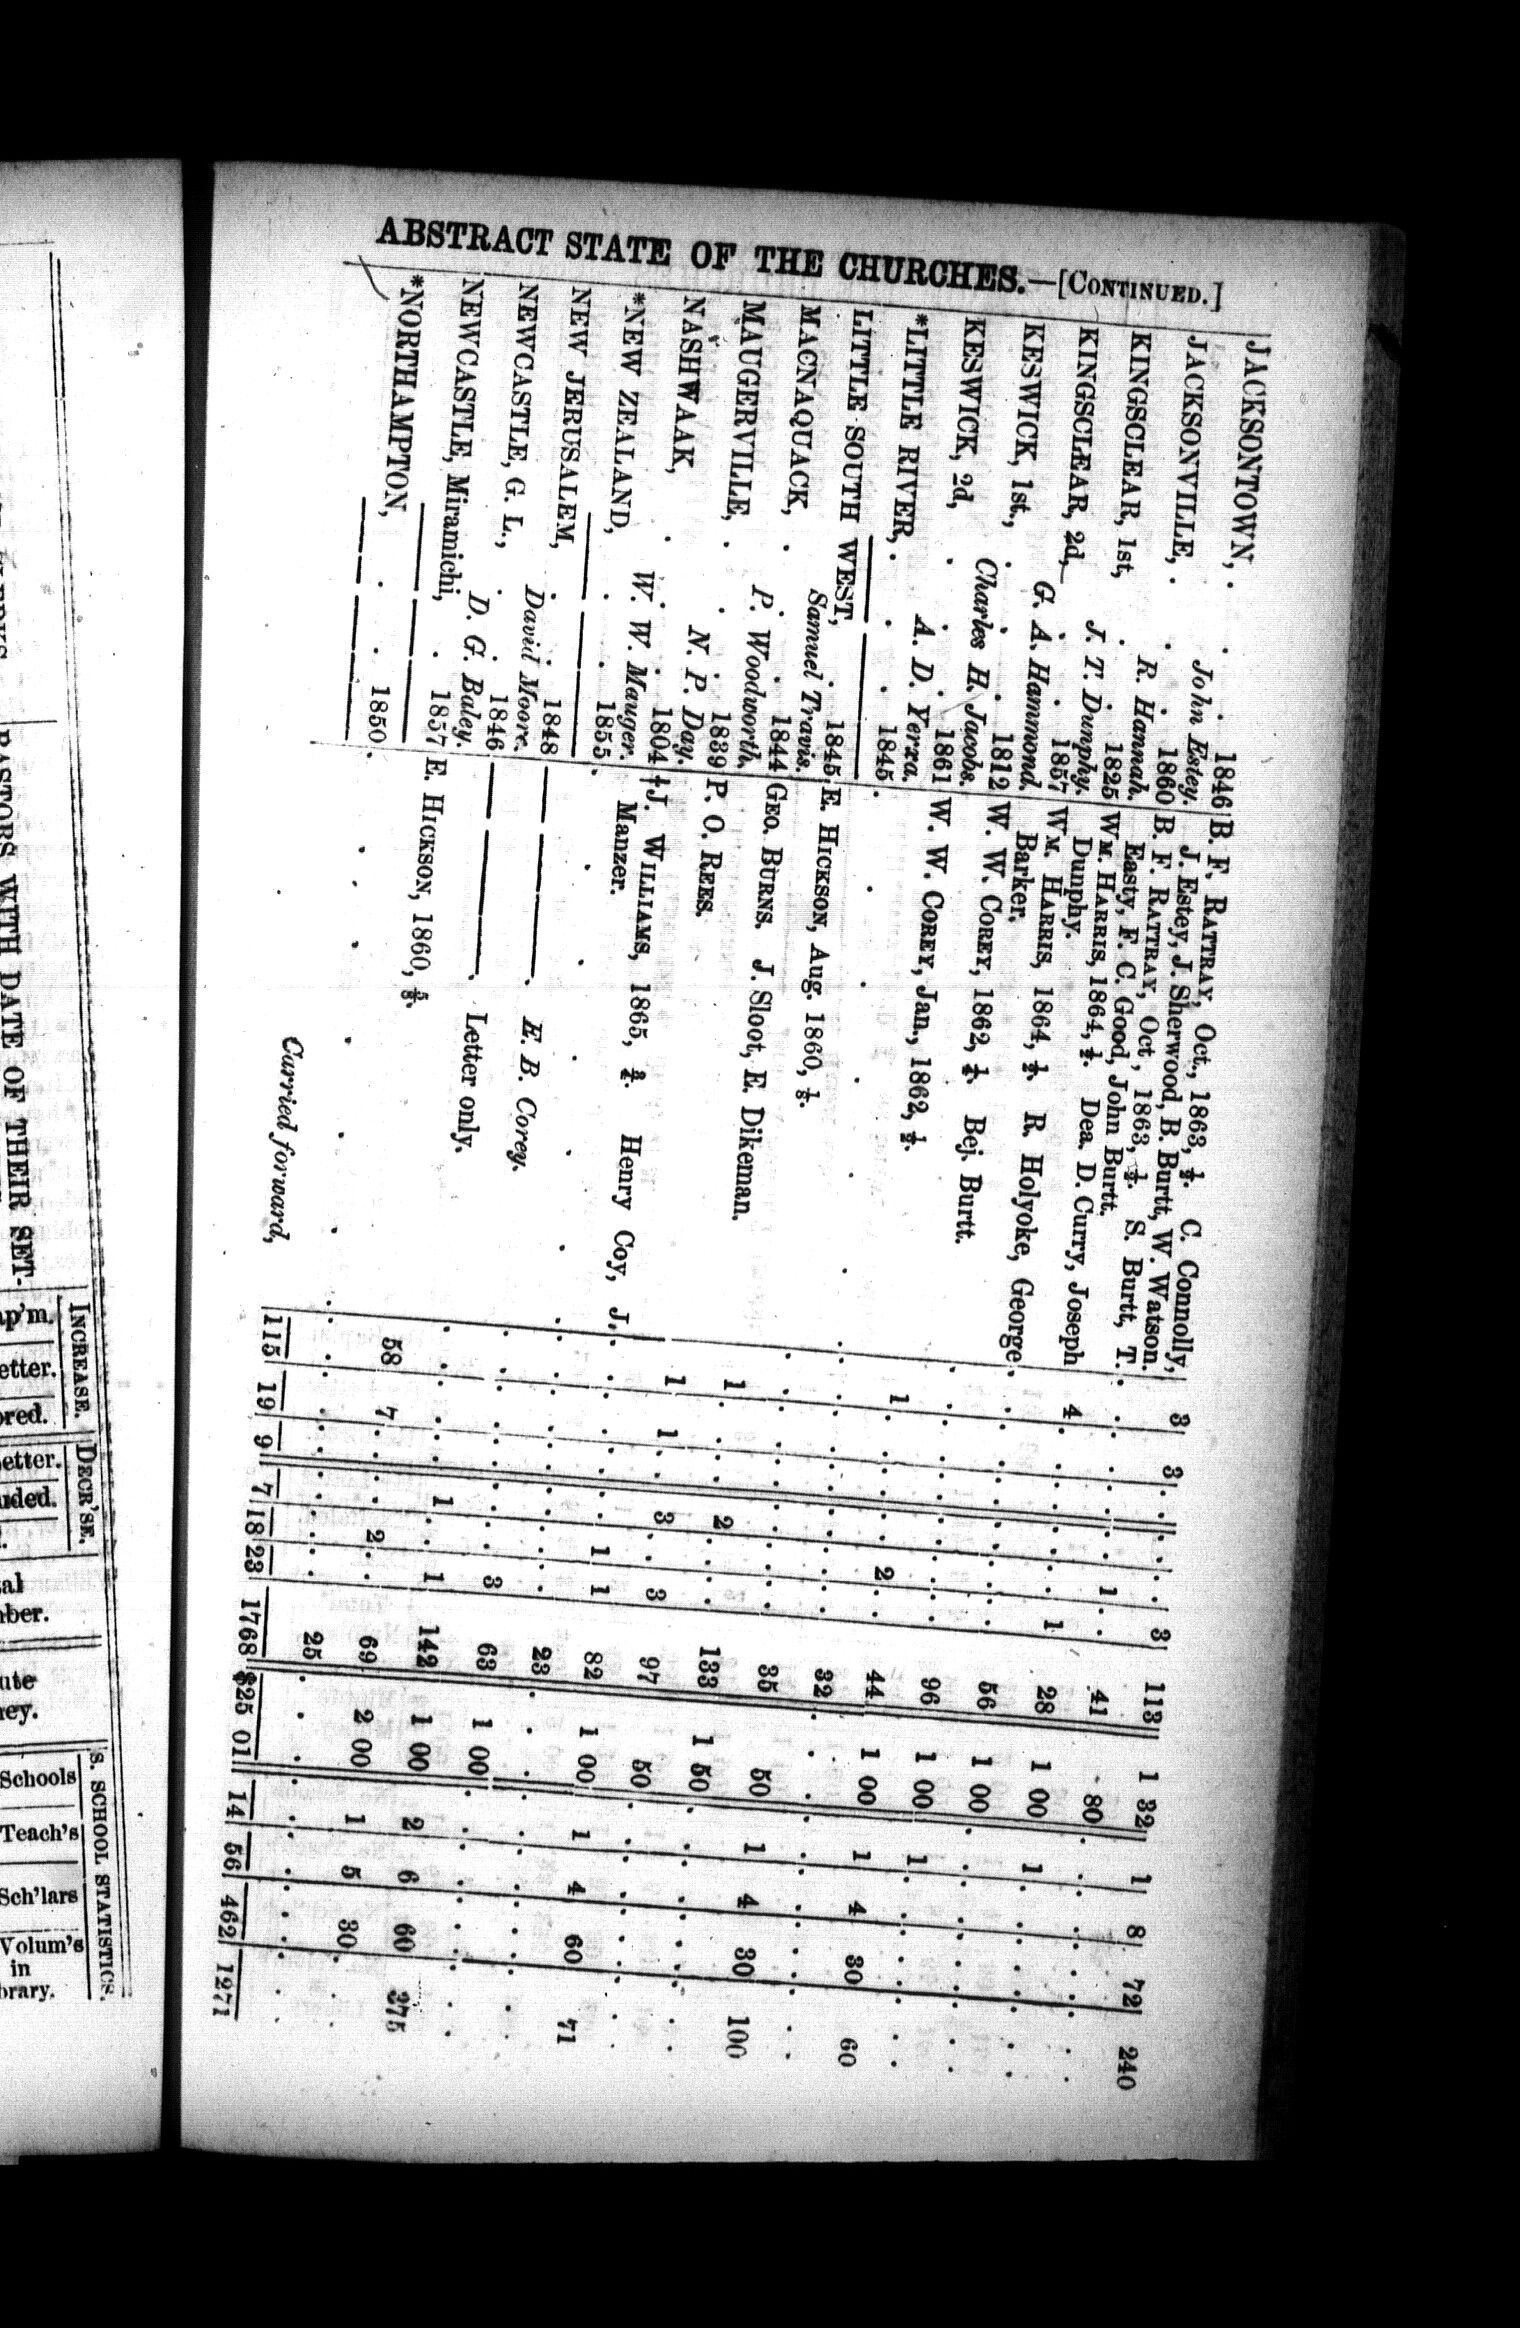 ABSTRACT STATE OF THE CHURCHES.—[CONTINUED.]
JACKSONTOWN, . . . 1846 B. F. RATTRAY, Oct., 1863, ½. C. Connolly, 3 3 . . . 3 113 1 32 1 8 72 240
John Estey. J. Estey, J. Sherwood, B. Burtt, W. Watson.
JACKSONVILLE, . . . 1860 B. F. RATTRAY, Oct, 1863, ½. S. Burtt, T. . . . . 1 . 41 80
R. Hannah. Easty, F. C. Good, John Burtt.
KINGSCLEAR, 1st, . . 1825 WM. HARRIS, 1864, ½. Dea. D. Curry, Joseph 4 . . . . 1 28 1 00 1
J. T. Dunphy. Dunphy.
KINGSCLEAR, 2d, . . 1857 WM. HARRIS, 1864, ½. R. Holyoke, George . . . . . . 56 1 00
G. A. Hammond. Barker.
KESWICK, 1st., . . . 1812 W. W. COREY, 1862, ¼. Bej. Burtt. . . . . . . 96 1 00 1
Charles H. Jacobs.
KESWICK, 2d, . . . 1861 W. W. COREY, Jan., 1862, ½. 1 . . . 2 . 44 1 00 1 4 30 60
A. D. Yerxa.
*LITTLE RIVER, . . . 1845 . . . . . . 32
LITTLE SOUTH WEST, . 1845 E. HICKSON, Aug. 1860, ⅛. . . . . . . 35 50 1 4 30 100
Samuel Travis.
MACNAQUACK, . . . 1844 GEO. BURNS. J. Sloot, E. Dikeman. 1 . . 2 . . 133 1 50
P. Woodworth.
MAUGERVILLE, . . . 1839 P. O. REES. 1 1 . 3 . 3 97 50
N. P. Day.
NASHWAAK, . . . 1804 †J. WILLIAMS, 1865, ¾. Henry Coy, J. . . . . 1 1 82 1 00 1 4 60 71
W. W. Mauger. Manzer.
*NEW ZEALAND, . . 1855 . . . . . . 23
NEW JERUSALEM, . . 1848 —— —— . E. B. Corey. . . . . . 3 63 1 00
David Moore.
NEWCASTLE, G. L., . . 1846 —— —— . Letter only. . . . 1 . 1 142 1 00 2 6 60 275
D. G. Baley.
NEWCASTLE, Miramichi, . 1857 E. HICKSON, 1860, ⅝. 58 7 . . 2 . 69 2 00 1 5 30
*NORTHAMPTON, . . . 1850 . . . . . . 25
Carried forward, 115 19 9 7 18 23 1768 $25 01 14 56 462 1271
PASTORS WITH DATE OF THEIR SET-
INCREASE. DECR'SE. S. SCHOOL STATISTICS.
ap'm. etter. ored. etter. uded. Schools Teach's Sch'lars Volum's
in